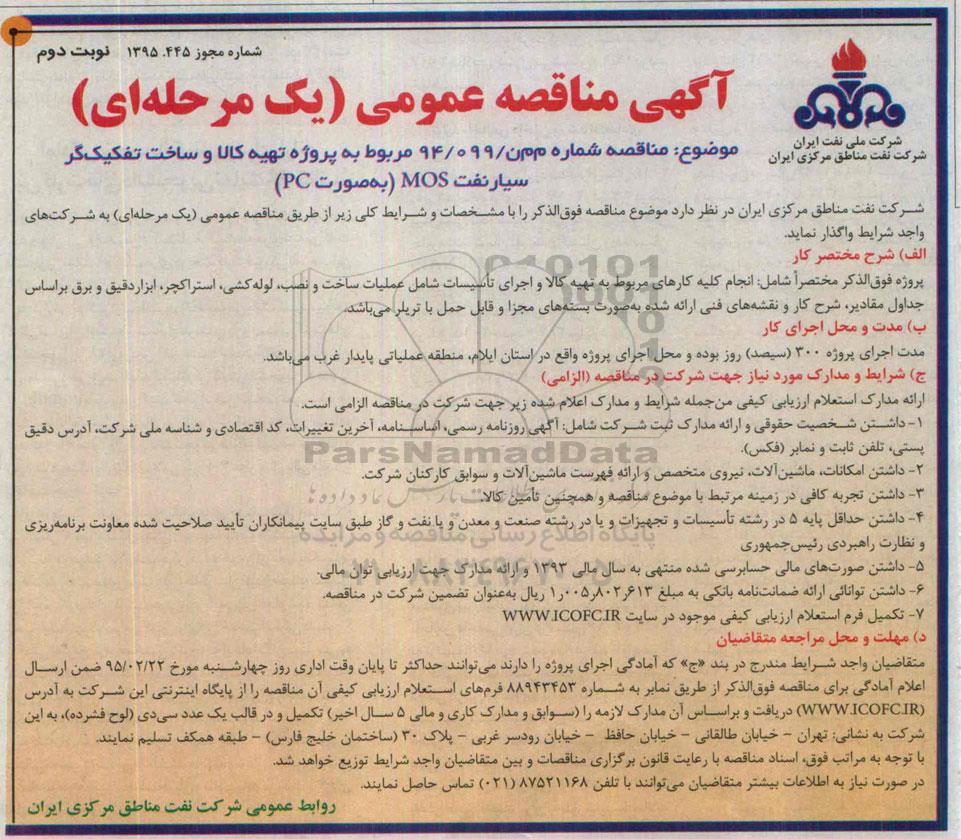 شماره مجوز ۴۴۵. ۱۳۹۵ نوبت دوم
آگهی مناقصه عمومی (یک مرحله‌ای)
شرکت ملی نفت ایران
شرکت نفت مناطق مرکزی ایران
موضوع: مناقصه شماره م‌م‌ن/۹۴/۰۹۹ مربوط به پروژه تهیه کالا و ساخت تفکیک‌گر
سیار نفت MOS (به‌صورت PC)
شرکت نفت مناطق مرکزی ایران در نظر دارد موضوع مناقصه فوق‌الذکر را با مشخصات و شرایط کلی زیر از طریق مناقصه عمومی (یک مرحله‌ای) به شرکت‌های
واجد شرایط واگذار نماید.
الف) شرح مختصر کار
پروژه فوق‌الذکر مختصراً شامل: انجام کلیه کارهای مربوط به تهیه کالا و اجرای تأسیسات شامل عملیات ساخت و نصب، لوله‌کشی، استراکچر، ابزاردقیق و برق براساس
جداول مقادیر، شرح کار و نقشه‌های فنی ارائه شده به‌صورت بسته‌های مجزا و قابل حمل با تریلر می‌باشد.
ب) مدت و محل اجرای کار
مدت اجرای پروژه ۳۰۰ (سیصد) روز بوده و محل اجرای پروژه واقع در استان ایلام، منطقه عملیاتی پایدار غرب می‌باشد.
ج) شرایط و مدارک مورد نیاز جهت شرکت در مناقصه (الزامی)
ارائه مدارک استعلام ارزیابی کیفی من‌جمله شرایط و مدارک اعلام شده زیر جهت شرکت در مناقصه الزامی است.
۱- داشتن شخصیت حقوقی و ارائه مدارک ثبت شرکت شامل: آگهی روزنامه رسمی، اساسنامه، آخرین تغییرات، کد اقتصادی و شناسه ملی شرکت، آدرس دقیق
پستی، تلفن ثابت و نمابر (فکس).
۲- داشتن امکانات، ماشین‌آلات، نیروی متخصص و ارائه فهرست ماشین‌آلات و سوابق کارکنان شرکت.
۳- داشتن تجربه کافی در زمینه مرتبط با موضوع مناقصه و همچنین تأمین کالا.
۴- داشتن حداقل پایه ۵ در رشته تأسیسات و تجهیزات و یا در رشته صنعت و معدن و یا نفت و گاز طبق سایت پیمانکاران تأیید صلاحیت شده معاونت برنامه‌ریزی
و نظارت راهبردی رئیس‌جمهوری
۵- داشتن صورت‌های مالی حسابرسی شده منتهی به سال مالی ۱۳۹۳ و ارائه مدارک جهت ارزیابی توان مالی.
۶- داشتن توانائی ارائه ضمانت‌نامه بانکی به مبلغ ۱٫۰۰۵٫۸۰۲٫۶۱۳ ریال به‌عنوان تضمین شرکت در مناقصه.
۷- تکمیل فرم استعلام ارزیابی کیفی موجود در سایت WWW.ICOFC.IR
د) مهلت و محل مراجعه متقاضیان
متقاضیان واجد شرایط مندرج در بند «ج» که آمادگی اجرای پروژه را دارند می‌توانند حداکثر تا پایان وقت اداری روز چهارشنبه مورخ ۹۵/۰۲/۲۲ ضمن ارسال
اعلام آمادگی برای مناقصه فوق‌الذکر از طریق نمابر به شماره ۸۸۹۴۳۴۵۳ فرم‌های استعلام ارزیابی کیفی آن مناقصه را از پایگاه اینترنتی این شرکت به آدرس
(WWW.ICOFC.IR) دریافت و براساس آن مدارک لازمه را (سوابق و مدارک کاری و مالی ۵ سال اخیر) تکمیل و در قالب یک عدد سی‌دی (لوح فشرده)، به این
شرکت به نشانی: تهران - خیابان طالقانی - خیابان حافظ - خیابان رودسر غربی - پلاک ۳۰ (ساختمان خلیج فارس) - طبقه همکف تسلیم نمایند.
با توجه به مراتب فوق، اسناد مناقصه با رعایت قانون برگزاری مناقصات و بین متقاضیان واجد شرایط توزیع خواهد شد.
در صورت نیاز به اطلاعات بیشتر متقاضیان می‌توانند با تلفن ۸۷۵۲۱۱۶۸ (۰۲۱) تماس حاصل نمایند.
روابط عمومی شرکت نفت مناطق مرکزی ایران
ParsNamadData
پایگاه اطلاع رسانی مناقصه و مزایده